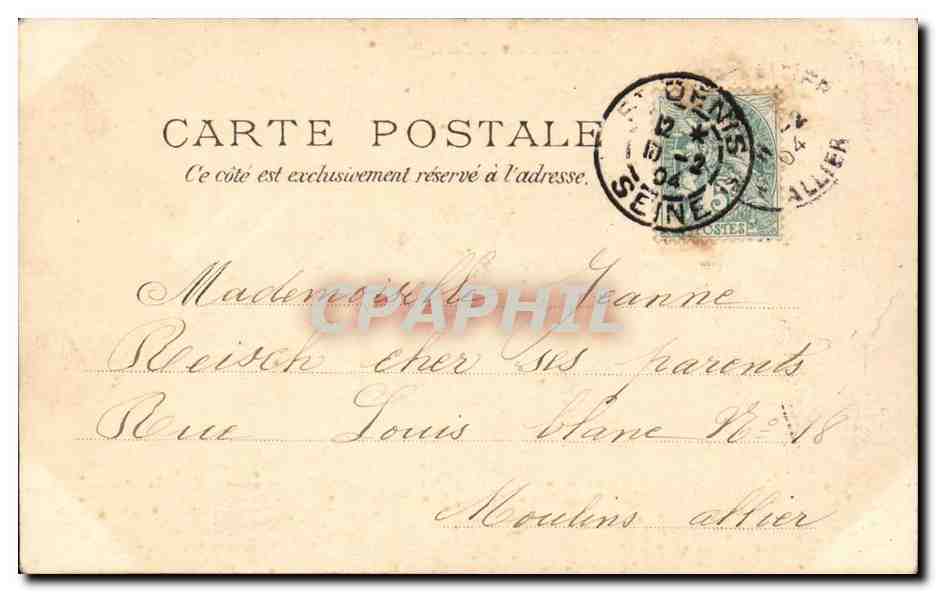 CARTE POSTALE
Ce côté est exclusivement réservé à l'adresse.
DENIS
12 *
10 -2
04
SEINE
5
POSTES
-2
04
ALLIER
CPAPHIL
Mademoiselle Jeanne
Reisch cher ses parents
Rue Louis blanc No 18
Moulins allier